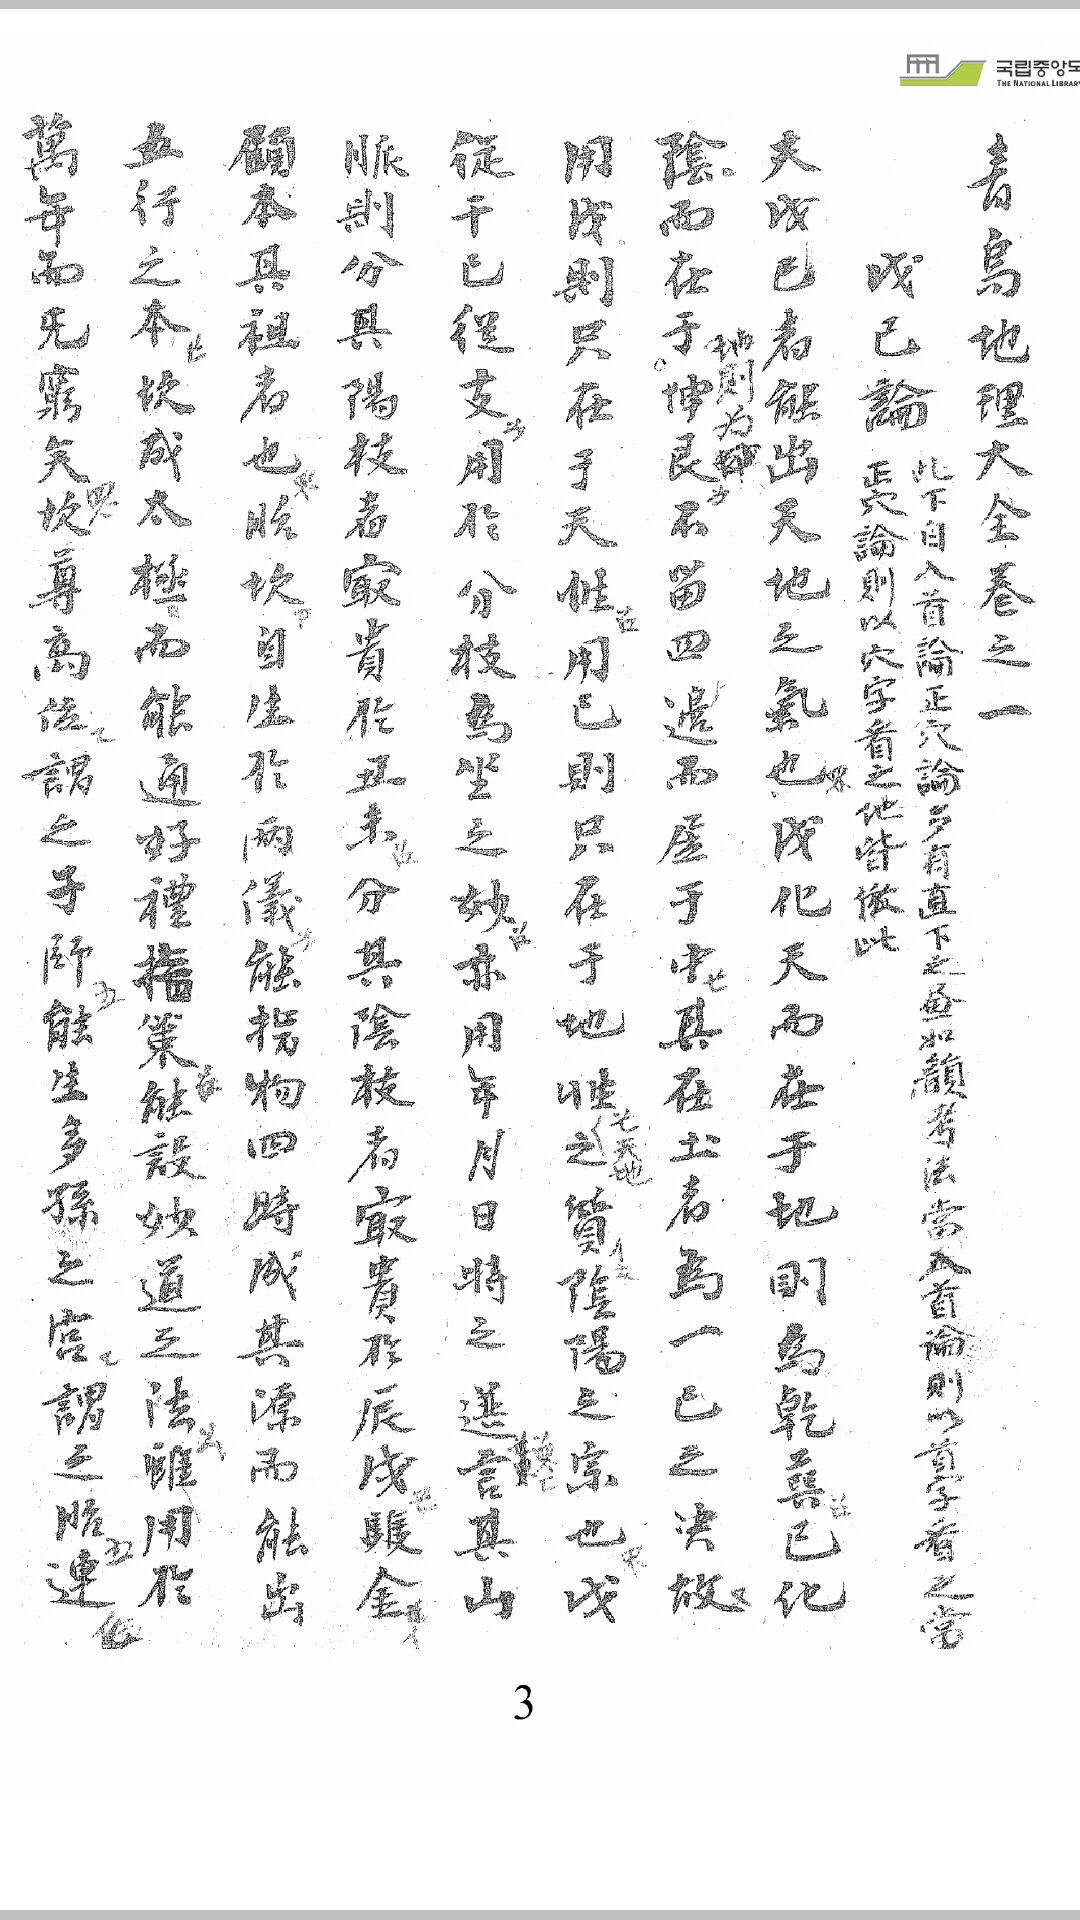 국립중앙도
THE NATIONAL LIBRARY
青烏地理大全卷之一
戊己論
此下自入首論正穴論多有直下之 如韻考法當入首論則以首字看之當
正穴論則以穴字看之他皆倣此
夫戊己者能出天地之氣也戊化天而在于地則爲乾巽己化
地則为坤
陰而在于坤艮不留四邊而虛于中其在土者爲一己之决故
用戊則只在于天性用己則只在于地性之質陰陽之宗也戊
七天地
從干己從支用於分枝爲坐之妙亦用年月日時之選言其山
脈則分其陽枝者最貴於丑未分其陰枝者最貴於辰戌雖金
顧本其祖者也 坎自生於兩儀能 物四時成其源而能出
五行之本坎成太極而能通好禮 策能設妙道之法雖用於
萬年而无窮矣坎尊高位謂之子師能生多孫之宮謂之 連
3